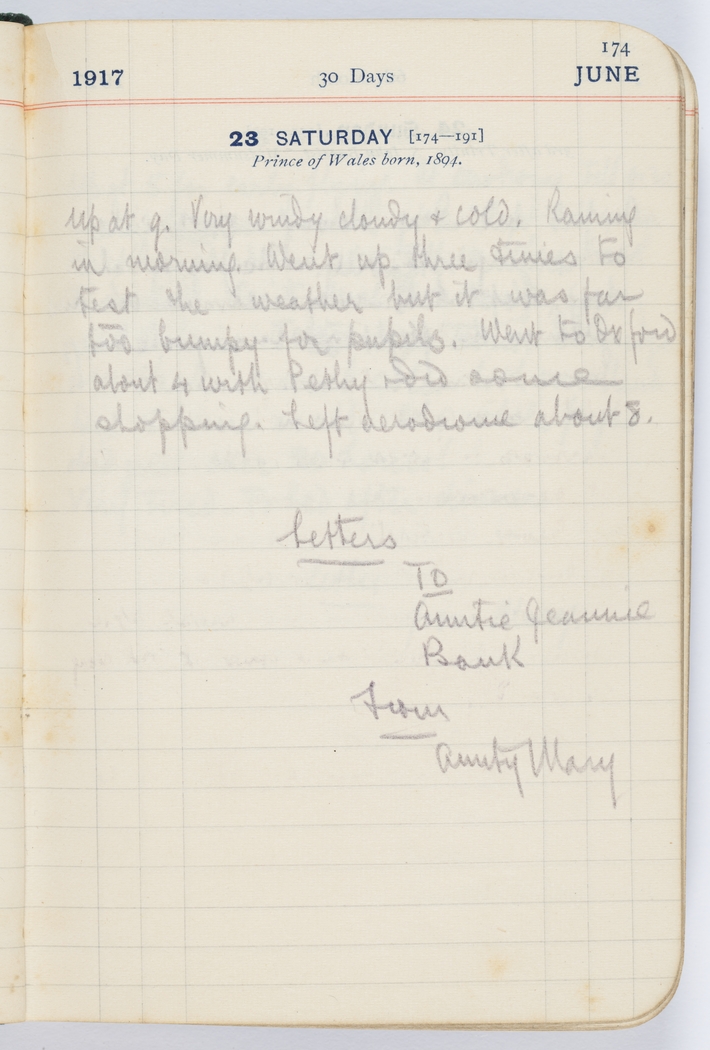 174
1917 30 Days JUNE
23 SATURDAY [174—191]
Prince of Wales born, 1894.
Up at 9. Very windy cloudy & cold. Raining
in morning. Went up three times to
test the weather but it was far
too bumpy for pupils. Went to Oxford
about 4 with Pethy & did some
shopping. Left aerodrome about 8.
Letters
To
Auntie Jeannie
Bank
From
Aunty Mary